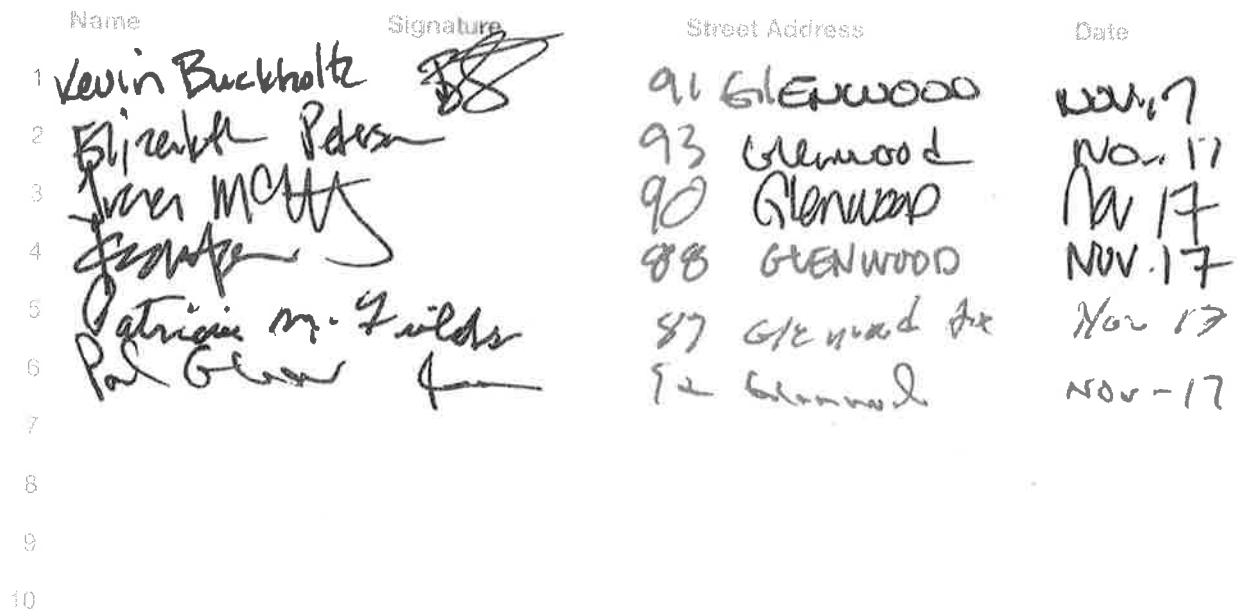 Name Signature Street Address Date
1 Kevin Buckholtz 91 GlENWOOD Nov. 17
2 Elizabeth Peterson 93 Glenwood Nov. 17
3 90 Glenwood Nov 17
4 88 GLENWOOD NOV. 17
5 Patricia M. Fields 87 Glenwood Ave Nov 17
6 Paul Glenwood Nov-17
7
8
9
10